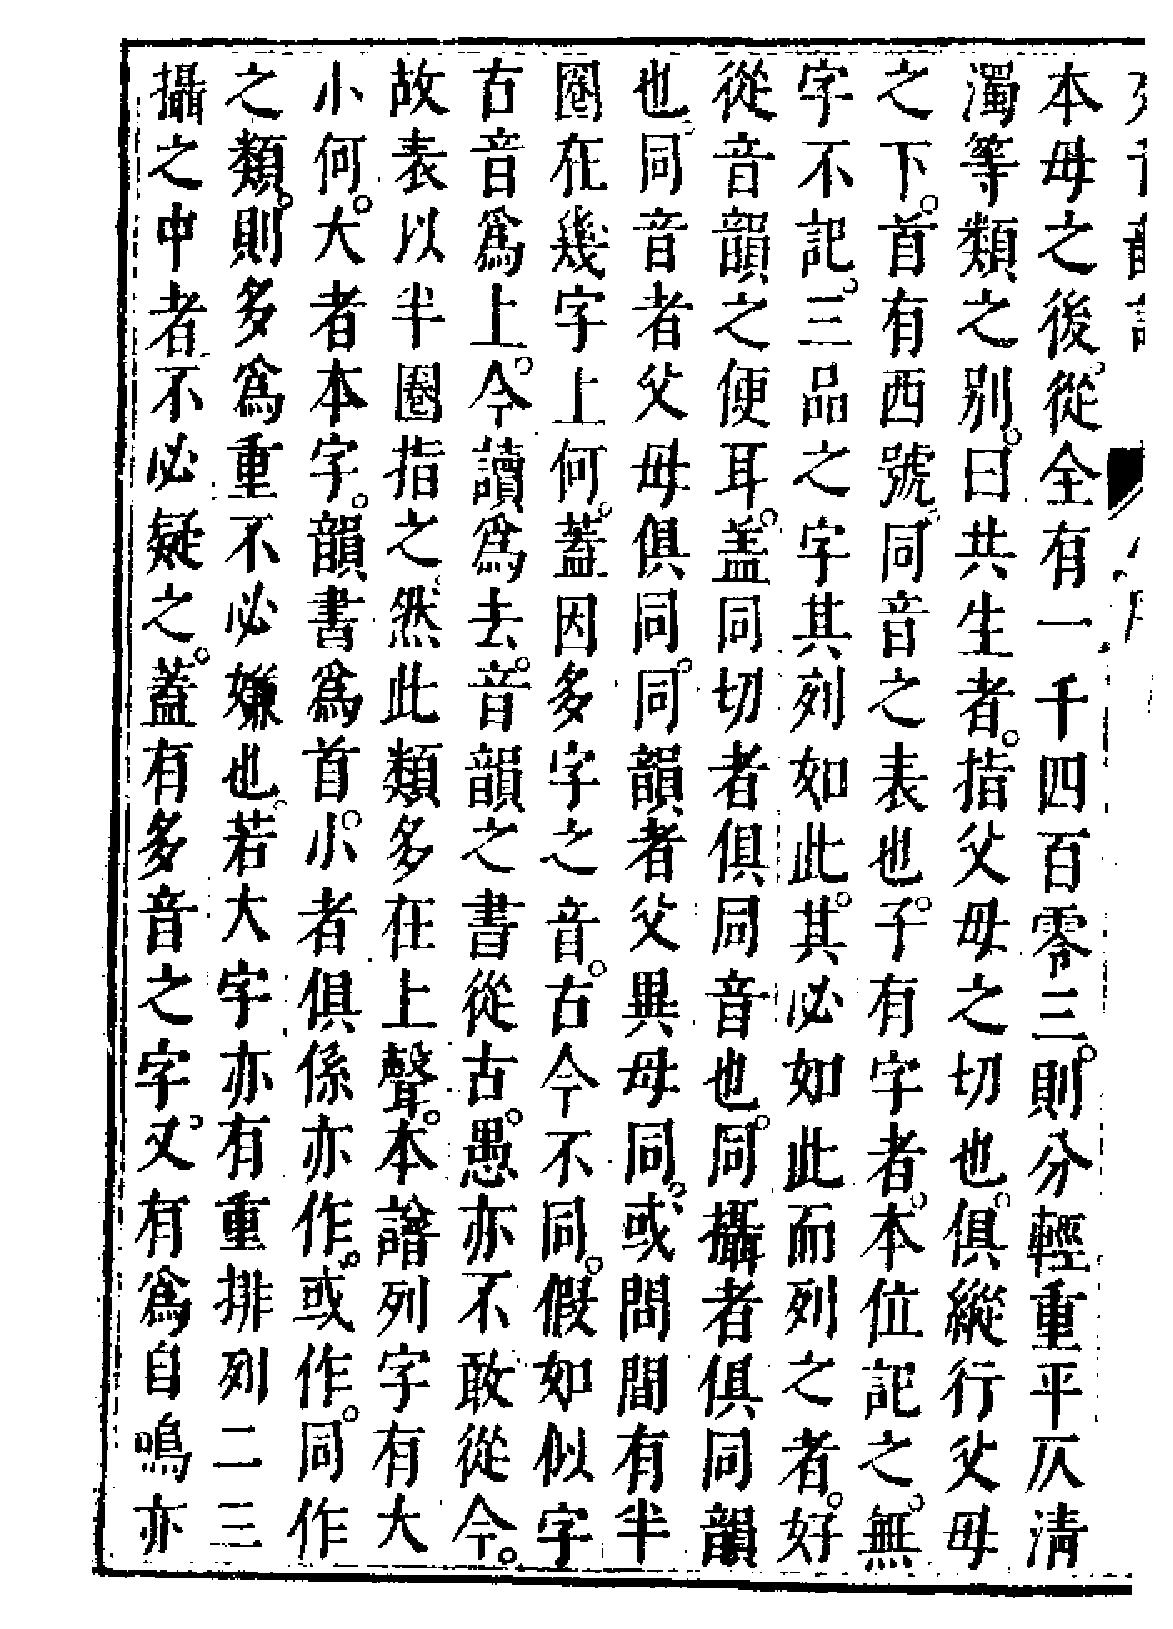 本母之後從全有一千四百零三則分輕重平仄清
濁等類之別曰共生者指父母之切也俱縱行父母
之下首有西號同音之表也子有字者本位記之無
字不記三品之字其列如此其必如此而列之者好
從音韻之便耳盖同切者俱同音也同攝者俱同韻
也同音者父母俱同同韻者父異母同或問間有半
圈在幾字上何蓋因多字之音古今不同假如似字
古音爲上今讀爲去音韻之書從古愚亦不敢從今
故表以半圈指之然此類多在上聲本譜列字有大
小何大者本字韻書爲首小者俱係亦作或作同作
之類則多爲重不必嫌也若大字亦有重排列二三
攝之中者不必疑之蓋有多音之字又有爲自鳴亦